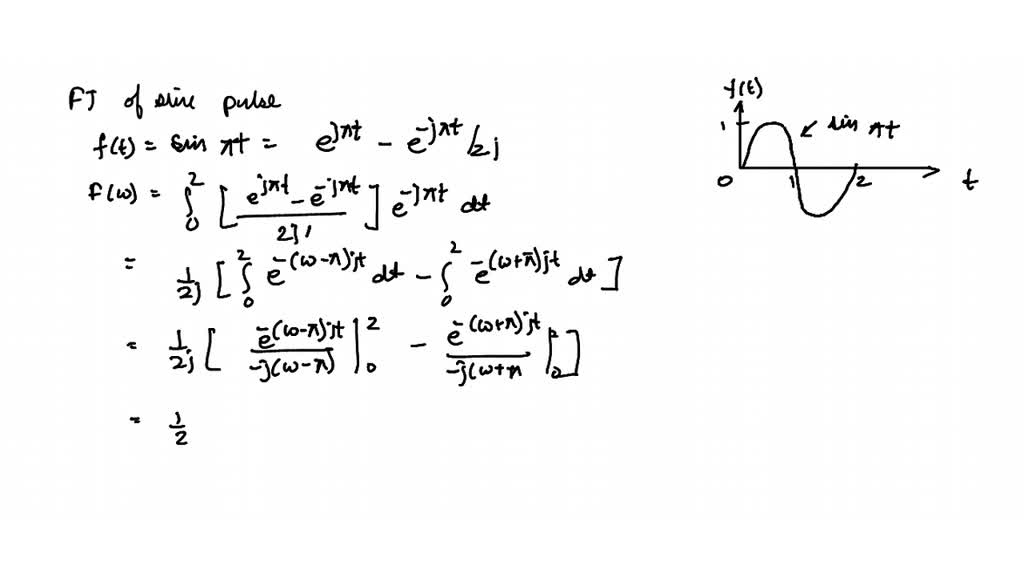 FT of sine pulse
f(t) = sin πt = e^{jπt} - e^{-jπt}/2j
F(ω) = ∫_0^2 [ (e^{jπt} - e^{-jπt})/2j ] e^{-jπt} dt
= 1/2j [ ∫_0^2 e^{-(ω-π)jt} dt - ∫_0^2 -e^{(ω+π)jt} dt ]
= 1/2j [ e^{-(ω-π)jt}/-j(ω-π) |_0^2 - e^{-(ω+π)jt}/-j(ω+π |_0^2 ]
= 1/2
f(t)
1
sin πt
0
1
2
t